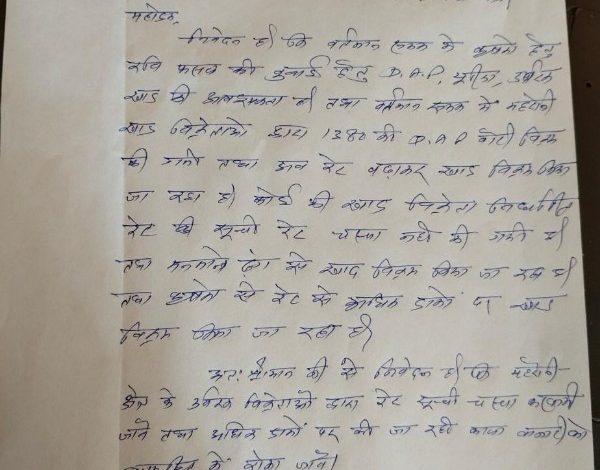 महोदय,
निवेदन है। कि वर्तमान समय मे कृषको हेतु
रवि फसल की बुवाई हेतु D.A.P, यूरिया, उर्वरक
खाद की आवश्यकता है। तथा वर्तमान समय में महरौनी
खाद विक्रेताओ द्वारा 1380 की D.A.P बोरी विक्रय
की गयी तथा अब रेट बढ़ाकर खाद विक्रय किया
जा रहा है। कोई भी खाद विक्रेता निर्धारित
रेट की सूची रेट चस्पा नही की गयी है।
तथा मनमाने ढंग से खाद विक्रय किया जा रहा है।
तथा कृषको से रेट से अधिक दामों पर खाद
विक्रय किया जा रहा है।
अतः श्रीमान जी से निवेदन है। कि महरौनी
क्षेत्र के उर्वरक विक्रेताओं द्वारा रेट सूची चस्पा करवायी
जाये तथा अधिक दामों पर की जा रही काला बाजारी को
में रोका जाये।